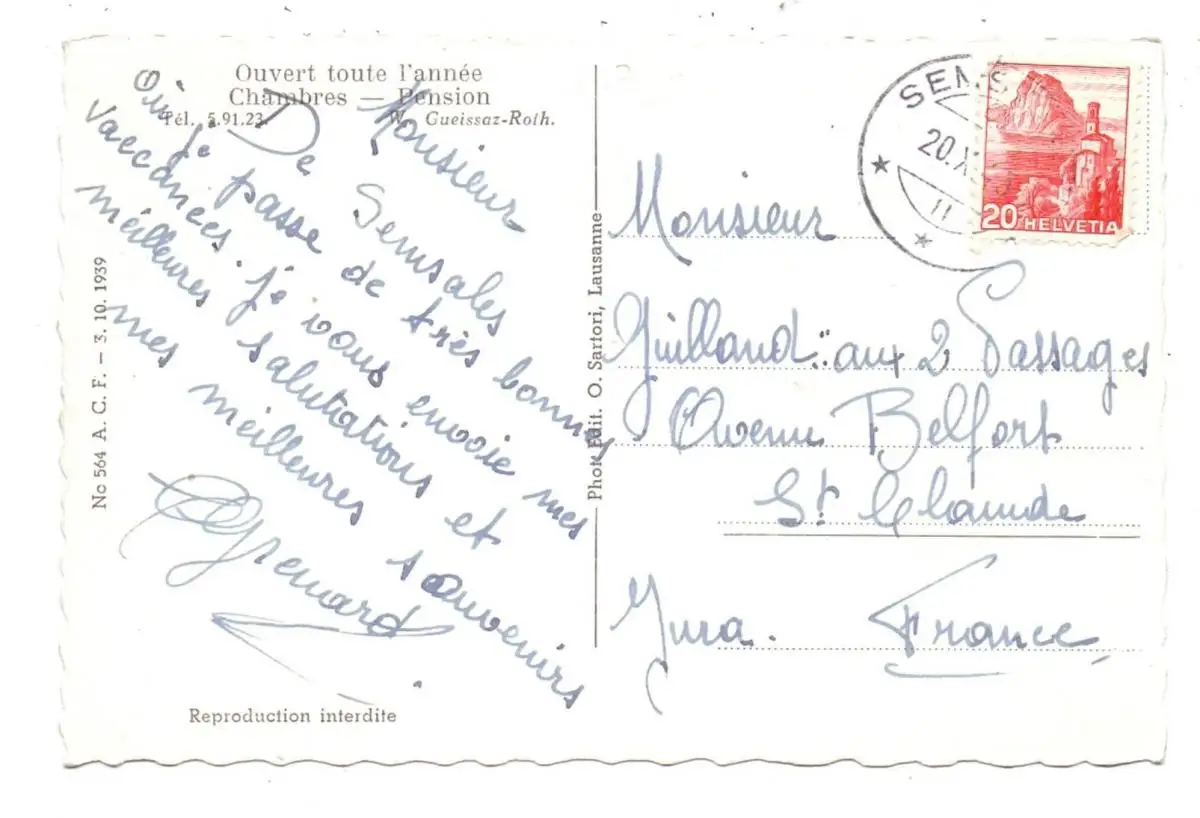 Ouvert toute l'année
Chambres — Pension
Tél. 5.91.23. W. Gueissaz-Roth.
Monsieur
De Semsales
Où je passe de très bonnes
vaccances. je vous envoie mes
meilleures salutations et
mes meilleures souvenirs
Grenard
Reproduction interdite
No 564 A. C. F. — 3. 10. 1939
Phot. Edit. O. Sartori, Lausanne
SEMS
20.X
11
20 HELVETIA
Monsieur
Guilland: aux 2 Passages
Avenue Belfort
St Claude
Jura. France